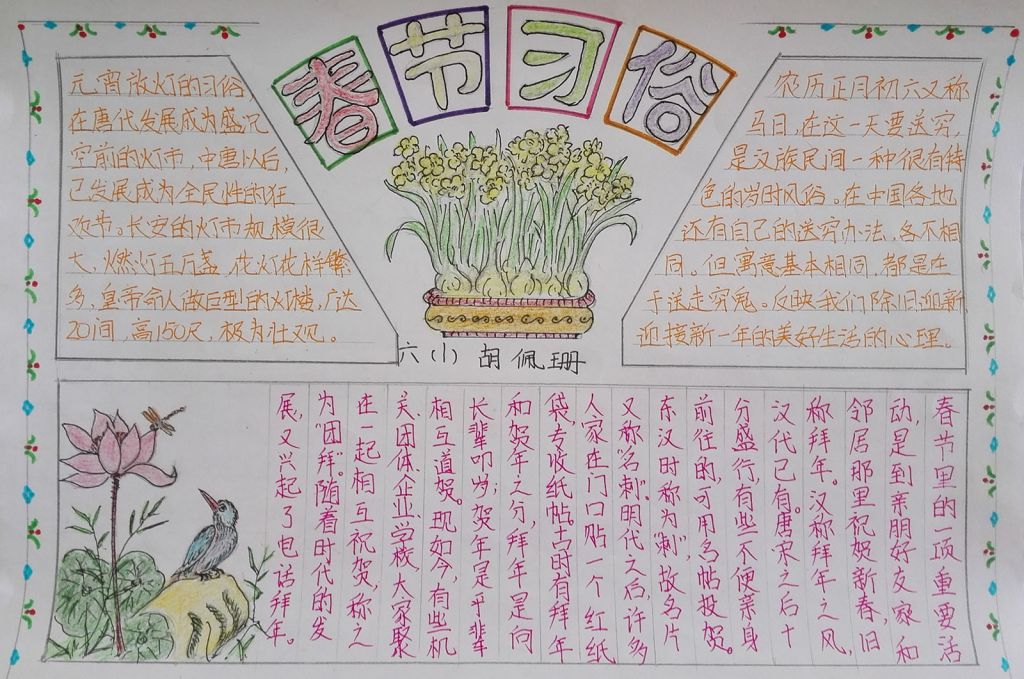 春节习俗
元宵放灯的习俗,
在唐代发展成为盛况
空前的灯市,中唐以后,
已发展成为全民性的狂
欢节。长安的灯市规模很
大,燃灯五万盏,花灯花样繁
多,皇帝命人做巨型的灯楼,广达
20间,高150尺,极为壮观。
农历正月初六又称
马日,在这一天要送穷,
是汉族民间一种很有特
色的岁时风俗。在中国各地
还有自己的送穷办法,各不相
同。但寓意基本相同,都是在
于送走穷鬼。反映我们除旧迎新
迎接新一年的美好生活的心理。
六(1)胡佩珊
春节里的一项重要活
动,是到亲朋好友家和
邻居那里祝贺新春,旧
称拜年。汉称拜年之风,
汉代已有。唐宋之后十
分盛行,有些不便亲身
前往的,可用名帖投贺。
东汉时称为“刺”,故名片
又称“名刺”。明代之后,许多
人家在门口贴一个红纸
袋,专收纸帖。古时有拜年
和贺年之分,拜年是向
长辈叩岁;贺年是平辈
相互道贺。现如今,有些机
关团体企业学校,大家聚
在一起相互祝贺,称之
为“团拜”。随着时代的发
展,又兴起了电话拜年。